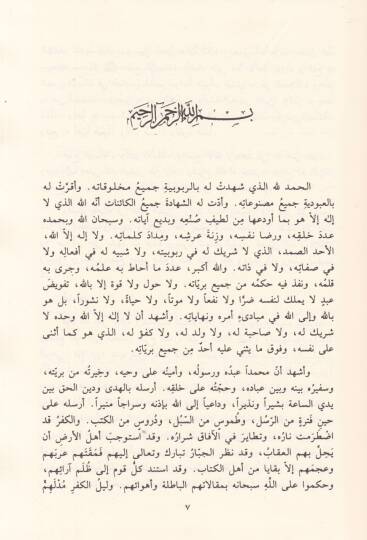 بسم الله الرحمن الرحيم
الحمد لله الذي شهدتْ له بالربوبية جميعُ مخلوقاته. وأقرَّتْ له
بالعبوديةِ جميعُ مصنوعاتِه. وأدّت له الشهادةَ جميعُ الكائنات أنَّه الله الذي لا
إله إلاّ هو بما أودعها مِن لطيفِ صُنْعِه وبديع آياته. وسبحان الله وبحمده
عددَ خلقِه، ورضا نفسِه، وزِنةَ عرشِه، ومِدادَ كلماتِه. ولا إله إلاّ الله،
الأحد الصمد، الذي لا شريك له في ربوبيته، ولا شبيه له في أفعاله ولا
في صفاتِه، ولا في ذاته. والله أكبر، عددَ ما أحاط به علمُه، وجرى به
قلمُه، ونفذ فيه حكمُه من جميع بريّاته. ولا حول ولا قوة إلا بالله، تفويضَ
عبدٍ لا يملك لنفسه ضرّاً ولا نفعاً ولا موتاً، ولا حياةً، ولا نشوراً، بل هو
بالله وإلى الله في مبادىءِ أمره ونهاياتِه. وأشهد أن لا إله إلاّ الله وحده لا
شريك له، ولا صاحبة له، ولا ولد له، ولا كفؤ له، الذي هو كما أثنى
على نفسه، وفوق ما يثني عليه أحدٌ مِن جميع بريّاتِه.
وأشهد أنّ محمداً عبدُه ورسولُه، وأمينُه على وحيه، وخِيرتُه من بريّته،
وسفيرُه بينه وبين عباده، وحجّتُه على خلقِه. أرسله بالهدى ودين الحق بين
يدي الساعة بشيراً ونذيراً، وداعياً إلى الله بإذنه وسراجاً منيراً. أرسله على
حينِ فترةٍ من الرّسُل، وطُموسٍ من السّبُل، ودُروسٍ من الكتب. والكفرُ قد
اضْطَرَمت نارُه، وتطايرَ في الآفاق شرارُه. وقد استوجبَ أهلُ الأرضِ أن
يَحِلَّ بهم العقابُ، وقد نظر الجبّارُ تبارك وتعالى إليهم فَمَقَتَهم عربَهم
وعجمَهم إلاّ بقايا من أهل الكتاب. وقد استند كلُّ قوم إلى ظُلَمِ آرائِهم،
وحكموا على اللَّهِ سبحانه بمقالاتهم الباطلة وأهوائهم. وليلُ الكفر مُدْلَهِمٌّ
٧